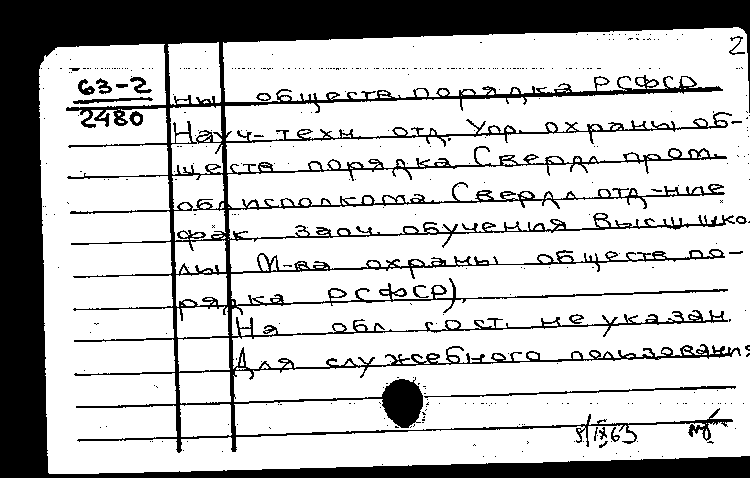 2
63-2
2480
ны обществ. порядка РСФСР
Науч-техн. отд. Упр. охраны об-
ществ порядка Свердл пром.
облисполкома. Свердл отд-ние
фак. заоч. обучения Высш. шко-
лы М-ва охраны обществ. по-
рядка РСФСР).
На обл. сост. не указан
Для служебного пользования
9/IX63